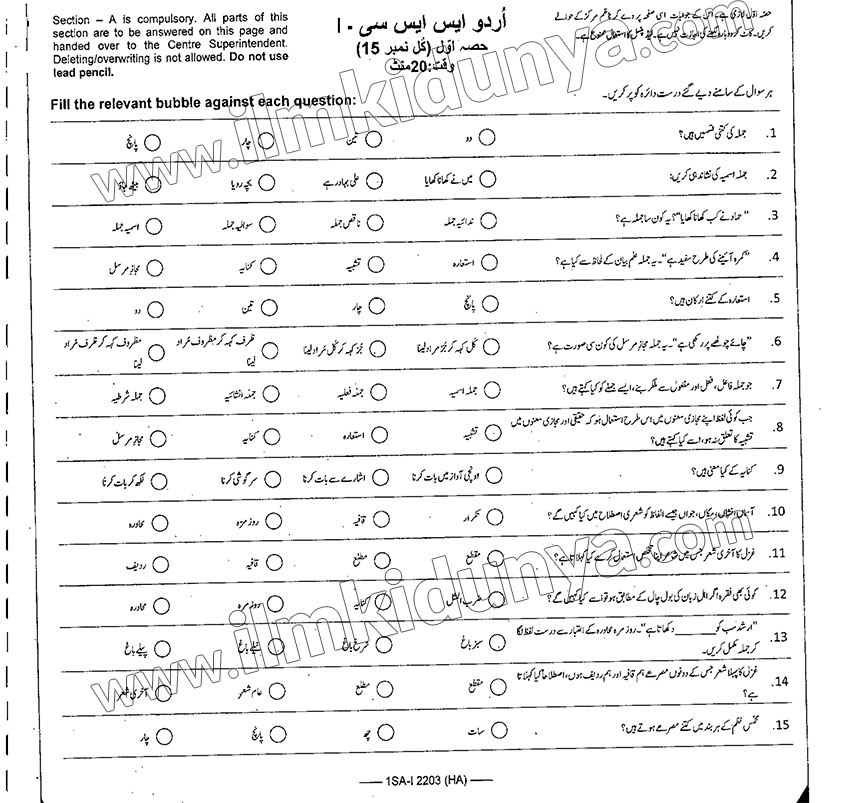 Section – A is compulsory. All parts of
section are to be answered on this page and
handed over to the Centre Superintendent.
Deleting/overwriting is not allowed. Do not use
lead pencil.
اُردو ایس ایس سی - I
حصہ اوّل (کُل نمبر 15)
وقت: 20 منٹ
حصہ اوّل لازمی ہے۔ اس کے جوابات اسی صفحہ پر دے کر ناظم مرکز کے حوالے
کریں۔ کاٹ کر دوبارہ لکھنے کی اجازت نہیں ہے۔ لیڈ پنسل کا استعمال ممنوع ہے۔
Fill the relevant bubble against each question:
ہر سوال کے سامنے دیے گئے درست دائرہ کو پُر کریں۔
1. جملہ کی کتنی قسمیں ہیں؟ دو تین چار پانچ
2. جملہ اسمیہ کی نشاندہی کریں: میں نے کھانا کھایا علی بہادر ہے بچہ رویا بیٹھ جاؤ
3. "حماد نے کب کھانا کھایا"؟ یہ کون سا جملہ ہے؟ ندائیہ جملہ ناقص جملہ سوالیہ جملہ اسمیہ جملہ
4. "کمرہ آئینے کی طرح سفید ہے"۔ یہ جملہ علم بیان کے لحاظ سے کیا ہے؟ استعارہ تشبیہ کنایہ مجاز مرسل
5. استعارہ کے کتنے ارکان ہیں؟ پانچ چار تین دو
6. "چائے چولھے پر رکھی ہے"۔ یہ جملہ مجاز مرسل کی کون سی صورت ہے؟ کُل کہہ کر جُز مراد لینا جُز کہہ کر کُل مُراد لینا ظرف کہہ کر مظروف مُراد لینا مظروف کہہ کر ظرف مُراد لینا
7. جو جملہ فاعل، فعل اور مفعول سے مل کر بنے، ایسے جملے کو کیا کہتے ہیں؟ جملہ اسمیہ جملہ فعلیہ جملہ انشائیہ جملہ شرطیہ
8. جب کوئی لفظ اپنے مجازی معنوں میں اس طرح استعمال ہو کہ حقیقی اور مجازی معنوں میں
تشبیہ کا تعلق نہ ہو، اسے کیا کہتے ہیں؟ تشبیہ استعارہ کنایہ مجاز مرسل
9. کنایہ کے کیا معنی ہیں؟ اونچی آواز میں بات کرنا اشارے سے بات کرنا سرگوشی کرنا لکھ کر بات کرنا
10. آسماں، نشاں، مکاں، جواں جیسے الفاظ کو شعری اصطلاح میں کیا کہیں گے؟ تکرار قافیہ روزمرہ محاورہ
11. غزل کا آخری شعر جس میں شاعر اپنا تخلص استعمال کرے کیا کہلاتا ہے؟ مقطع مطلع قافیہ ردیف
12. کوئی بھی فقرہ اگر اہل زبان کی بول چال کے مطابق ہو تو اسے کیا کہیں گے؟ ضرب المثل کنایہ روزمرہ محاورہ
13. "ارشد سب کو ______ دکھاتا ہے"۔ روزمرہ محاورہ کے اعتبار سے درست لفظ لگا
کر جملہ مکمل کریں۔ سبز باغ سرخ باغ نیلے باغ پیلے باغ
14. غزل کا پہلا شعر جس کے دونوں مصرعے ہم قافیہ اور ہم ردیف ہوں، اصطلاحاً کیا کہلاتا
ہے؟ مقطع مطلع عام شعر آخری شعر
15. مخمس نظم کے ہر بند میں کتنے مصرعے ہوتے ہیں؟ سات چھ پانچ چار
— 1SA-I 2203 (HA) —
www.ilmkidunya.com
www.ilmkidunya.com